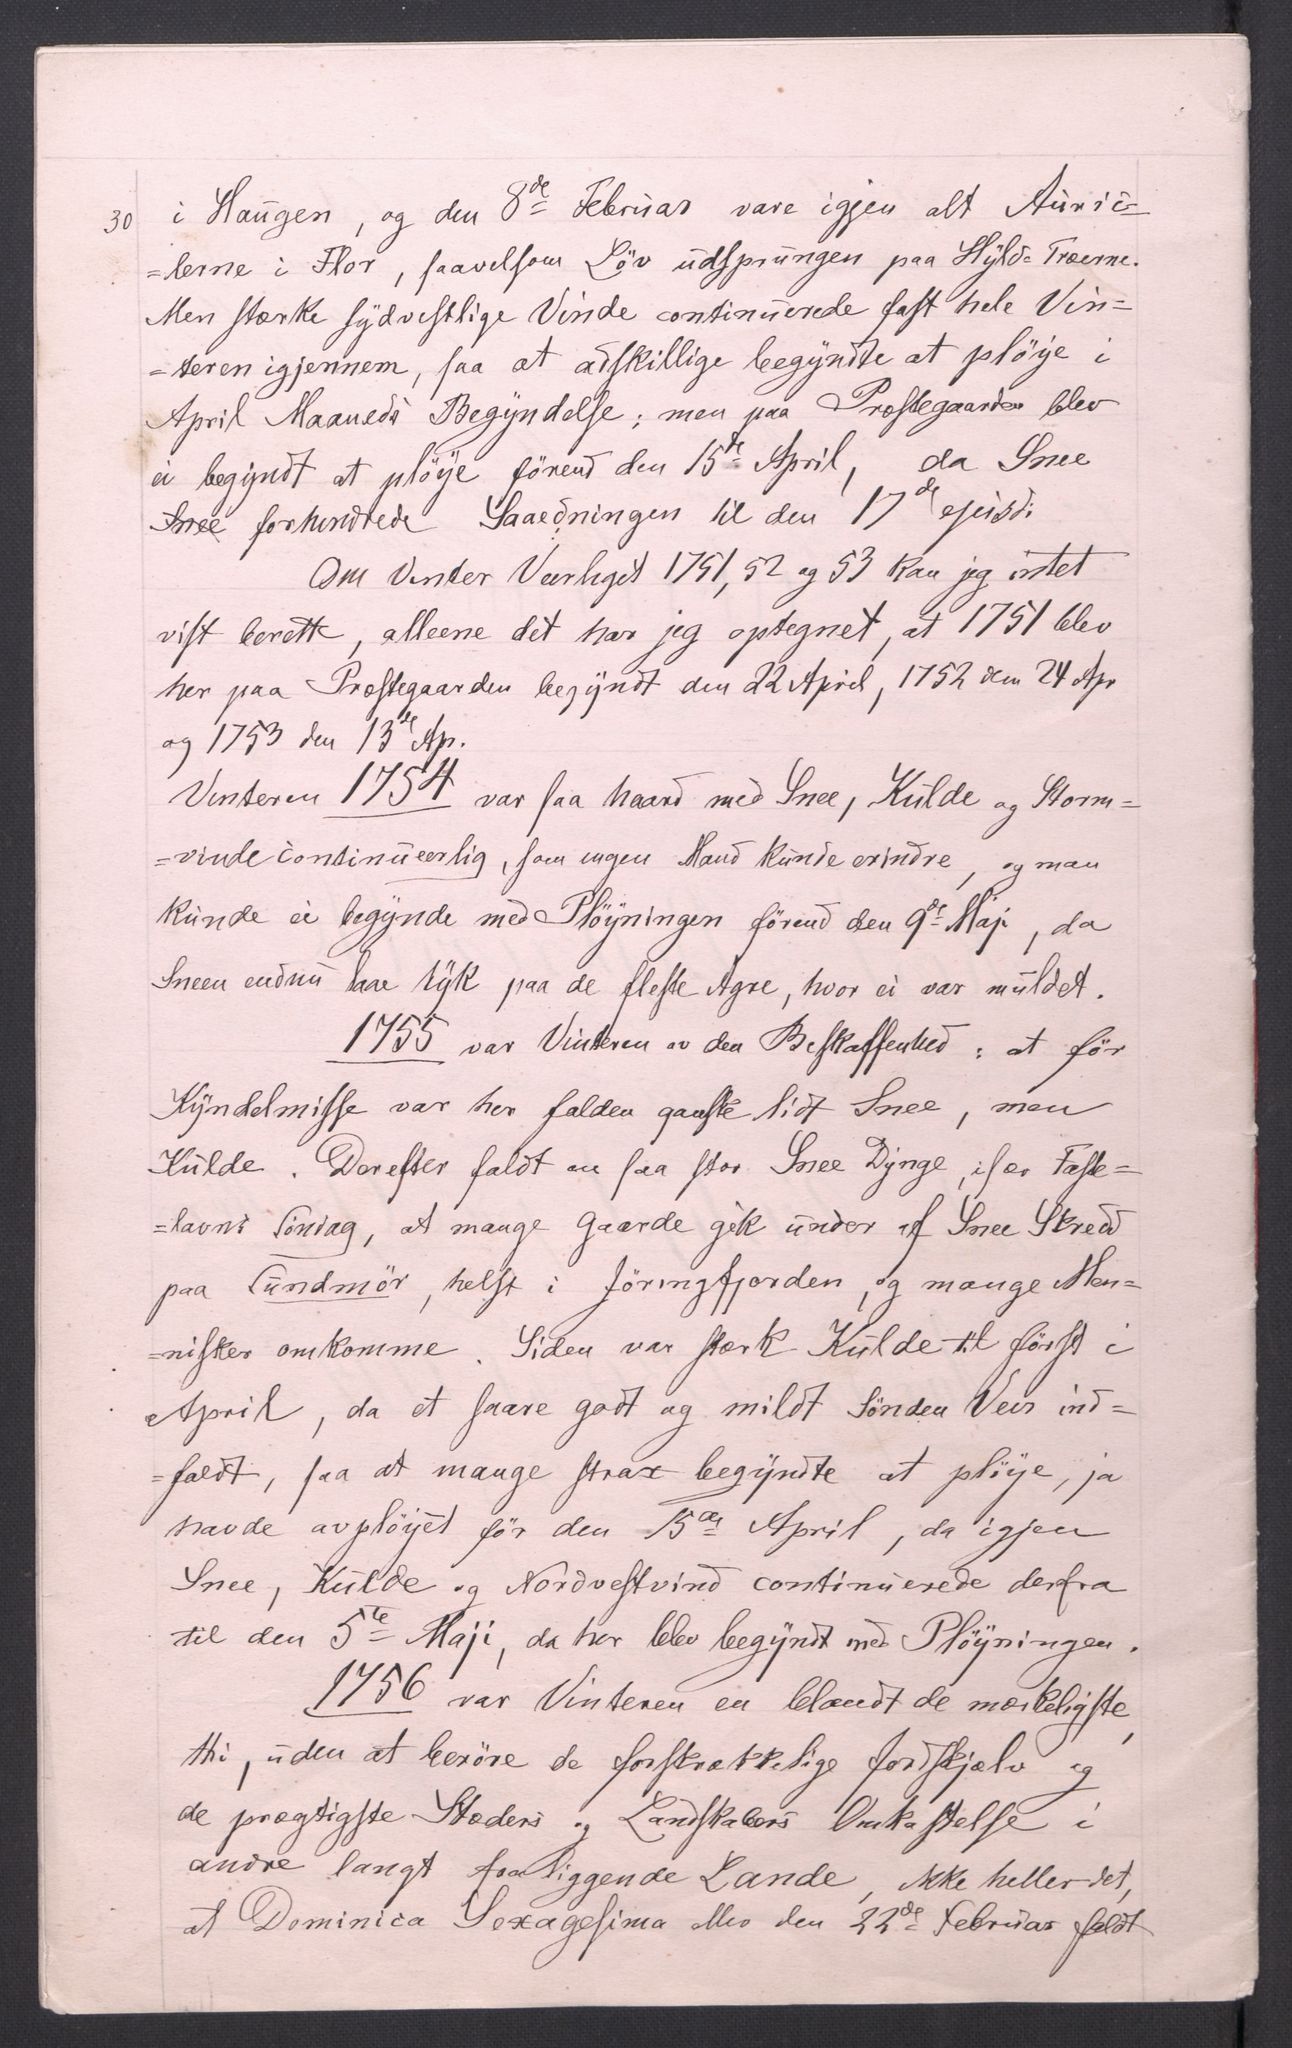 30 i Haugen, og den 8de Februar vare igjen alt Auric=
=lerne i Flor, saavelsom Löv udsprungen paa Hyld=Træerne.
Men stærke sydvestlige Vinde continuerede fast hele Vin=
=teren igjennem, saa at adskillige begyndte at plöye i
April Maaneds Begyndelse; men paa Præstegaarden blev
ei begyndt at plöye förend den 15de April, da Snee
Snee forhindrede Saaedningen til den 17de ejusd:
Om Vinter Veirliget 1751, 52 og 53 kan jeg intet
vist berette, alleene det har jeg optegnet, at 1751 blev
her paa Præstegaarden begyndt den 22 April, 1752 den 24 Apr
og 1753 den 13de Ap.
Vinteren 1754 var saa haard med Snee, Kulde og Storm=
=vinde continueerlig, som ingen Mand kunde erindre, og man
kunde ei begynde med Plöyningen förend den 9de Maji, da
Sneen endnu laae tyk paa de fleste Agre, hvor ei var muldet.
1755 var Vinteren av den Beskaffenhed: at för
Kyndelmisse var her falden ganske lidt Snee, men
Kulde. Derefter faldt en saa stor Snee Dynge, især Faste=
=lavns Söndag, at mange Gaarde gik under af Snee Skred
paa Sundmör, helst i Jöringfjorden, og mange Men=
=nisker omkomme. Siden var stærk Kulde til först i
April, da et saare godt og mildt Sönden Veir ind=
=faldt, saa at mange strax begyndte at plöye, ja
havde avplöyet för den 15de April, da igjen
Snee, Kulde og Nordvestvind continuerede derfra
til den 5te Maji, da her blev begyndt med Plöyningen.
1756 var Vinteren en blandt de mærkeligste,
thi, uden at beröre de forskrækkelige Jordskjælv og
de prægtigste Stæders og Landskabers Omkastelse i
andre langt fra liggende Lande, ikke heller det,
at Dominica Sexagesima blev den 22de Februar faldt